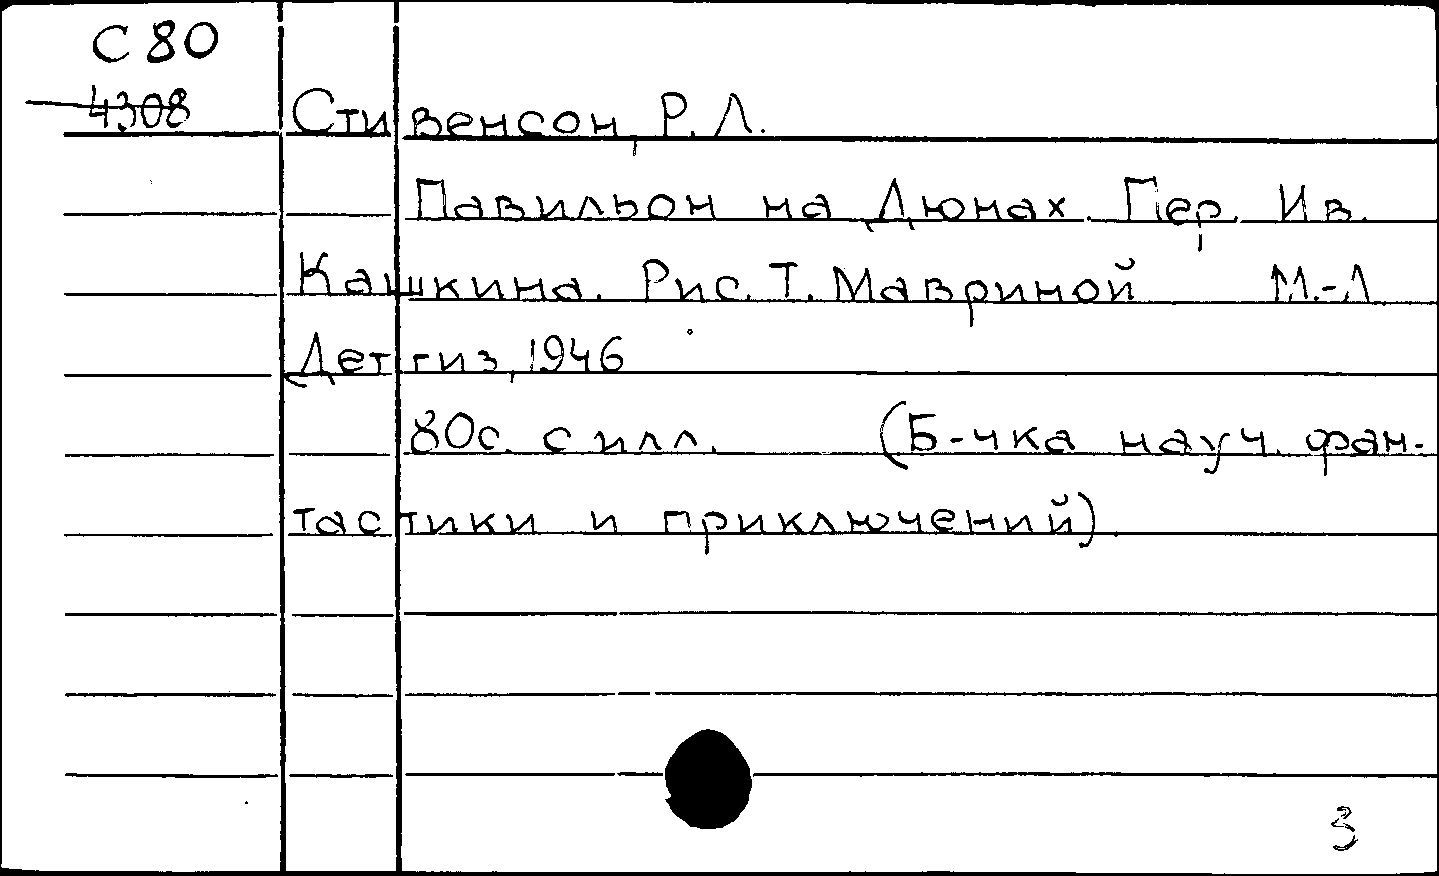 С 80
4308
Стивенсон, Р. Л.
Павильон на Дюнах. Пер. Ив.
Кашкина. Рис. Т. Мавриной М.-Л
Детгиз, 1946
80с. с илл. (Б-чка науч. фан-
тастики и приключений)
3